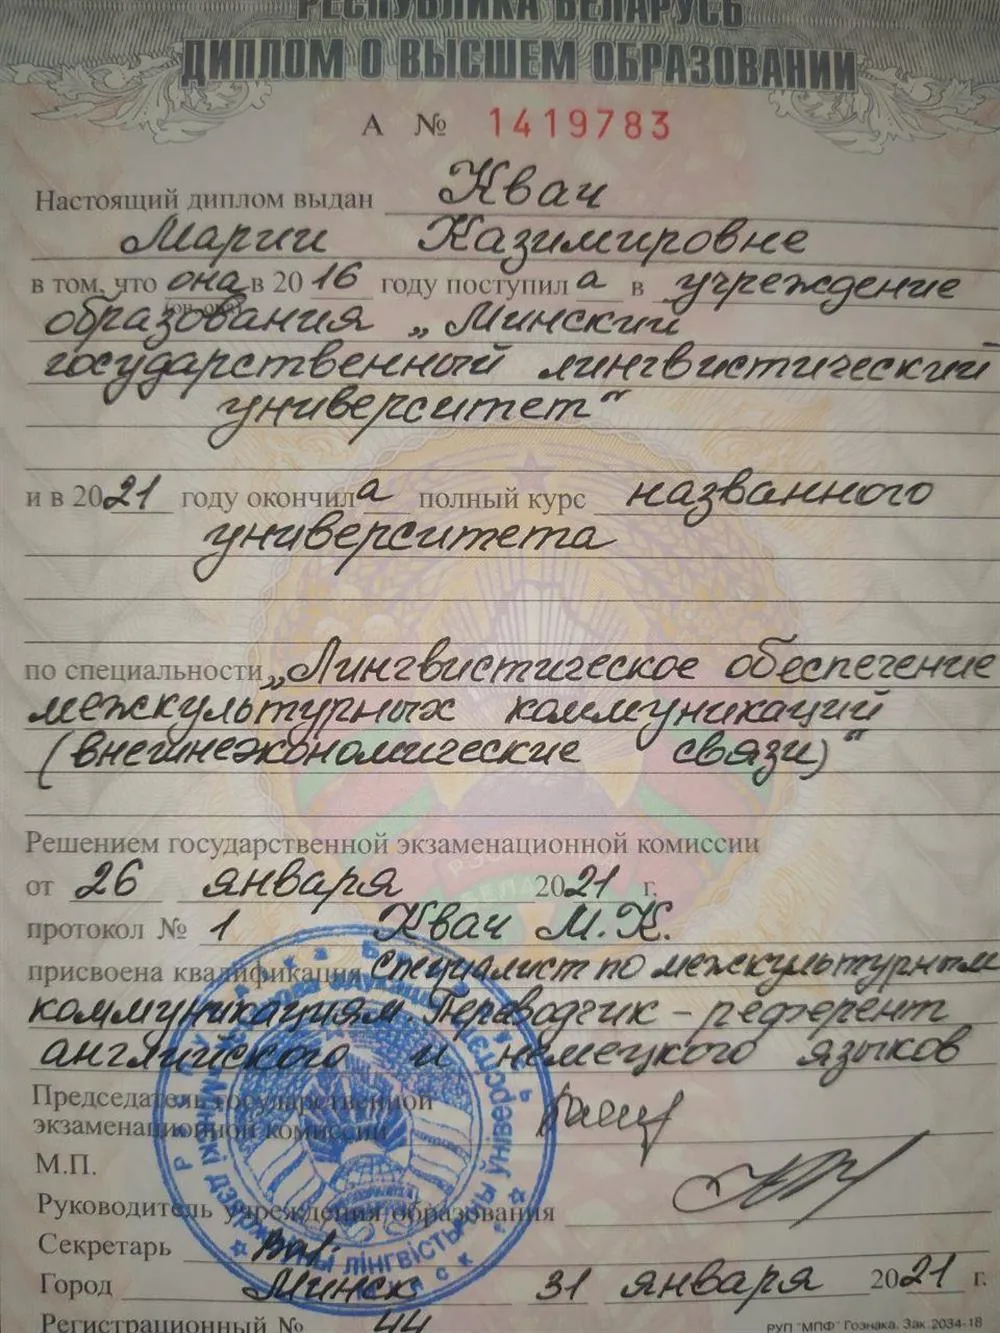 РЕСПУБЛИКА БЕЛАРУСЬ
ДИПЛОМ О ВЫСШЕМ ОБРАЗОВАНИИ
А № 1419783
Настоящий диплом выдан Квач
Марии Казимировне
в том, что она в 2016 году поступила в учреждение
(он, она)
образования „Минский
государственный лингвистический
университет“
и в 2021 году окончила полный курс названного
университета
по специальности „Лингвистическое обеспечение
межкультурных коммуникаций
(внешнеэкономические связи)“
Решением государственной экзаменационной комиссии
от 26 января 2021 г.
протокол № 1 Квач М.К.
присвоена квалификация специалист по межкультурным
коммуникациям Переводчик-референт
английского и немецкого языков
Председатель государственной
экзаменационной комиссии
М.П.
Руководитель учреждения образования
Секретарь
Город Минск 31 января 2021 г.
Регистрационный № 44
РУП "МПФ" Гознака. Зак. 2034-18